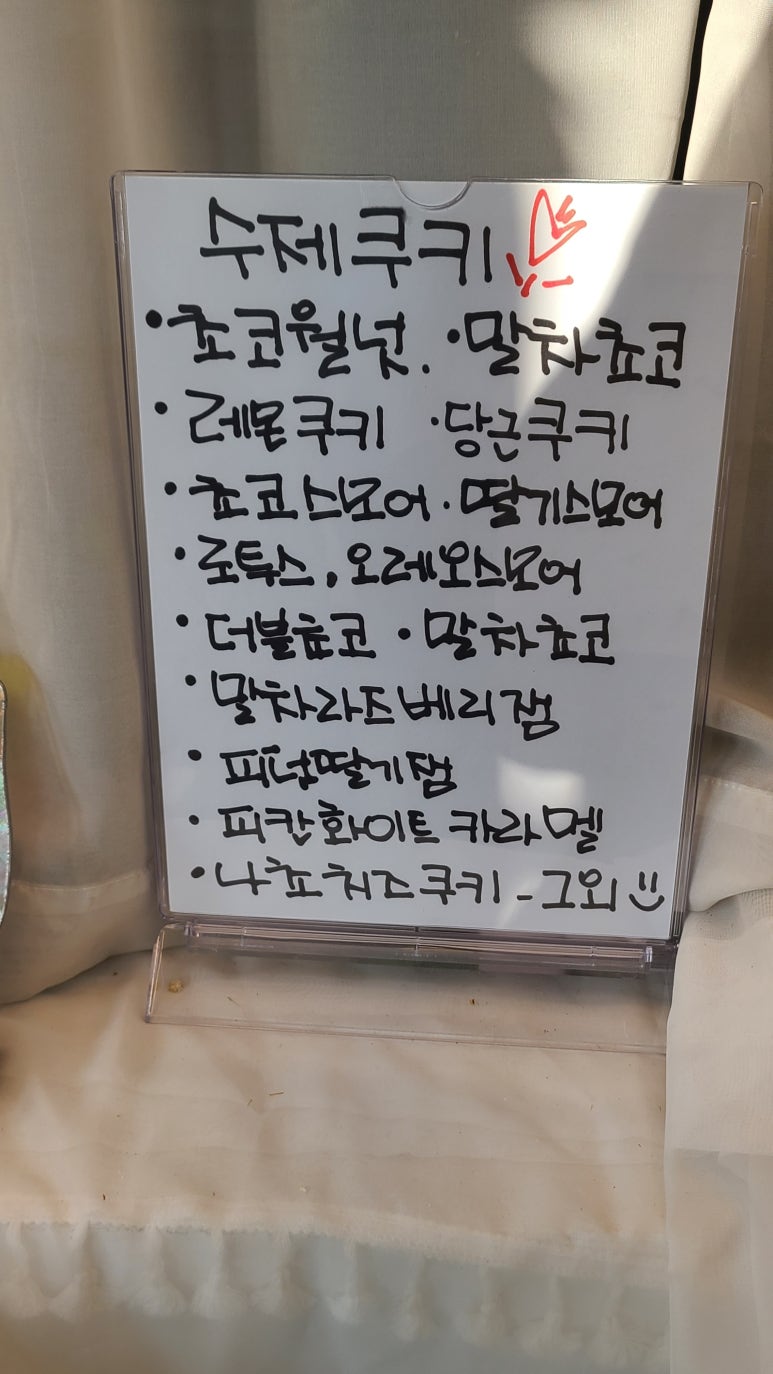 수제쿠키
•쵸코월넛. •말차쵸코
•레몬쿠키 •당근쿠키
•쵸코스모어•딸기스모어
•로투스, 오레오스모어
•더블쵸코 •말차쵸코
•말차라즈베리잼
•피넛딸기잼
•피칸화이트카라멜
•나쵸치즈쿠키-그외